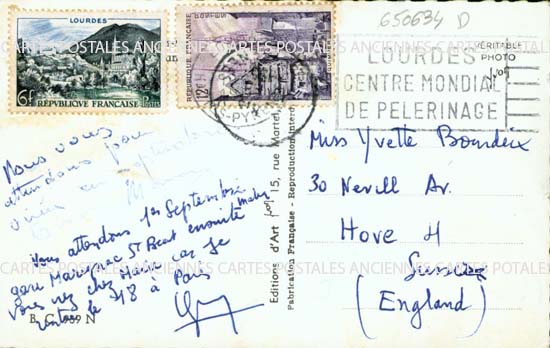 650634 D
LOURDES
6F
RÉPUBLIQUE FRANÇAISE
POSTES
RÉPUBLIQUE FRANÇAISE
12F
VÉRITABLE
PHOTO
LOURDES
CENTRE MONDIAL
DE PELERINAGE
CARTES POSTALES ANCIENNES CARTES POSTALES ANCIENNES
Nous vous
attendons pour
Vous attendons 1er Septembre matin
gare Marignac St Beat ensuite
vous irez chez Mamie car je
rentre le 31/8 à Paris
B. C. 989 N
Editions d'Art 15, rue Mortel
Fabrication Française - Reproduction interd
Miss Yvette Bourdeix
30 Nevill Av.
Hove 4
Sussex
(England)
CARTES POSTALES ANCIENNES CARTES POSTALES ANCIENNES CARTES POSTALES